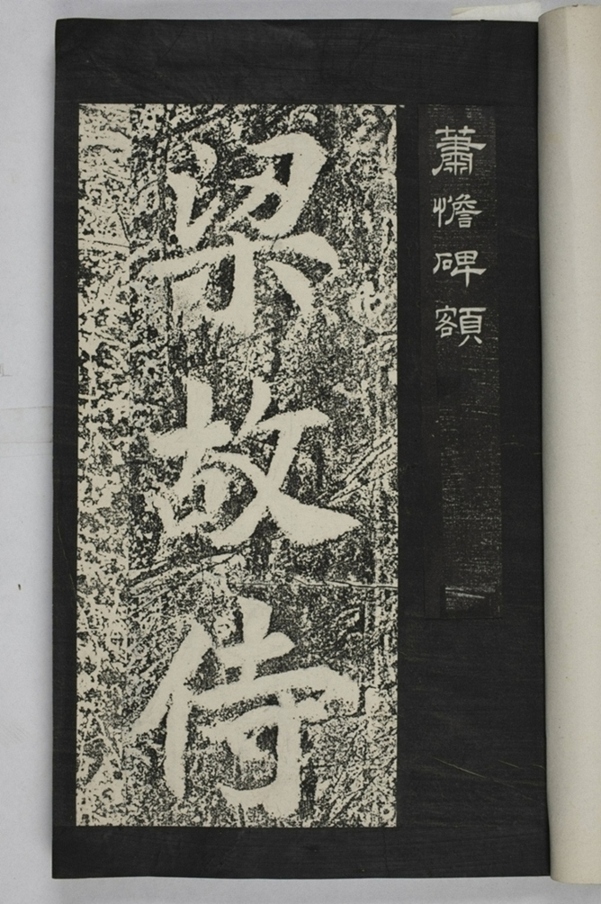 蕭憺碑額
梁故侍